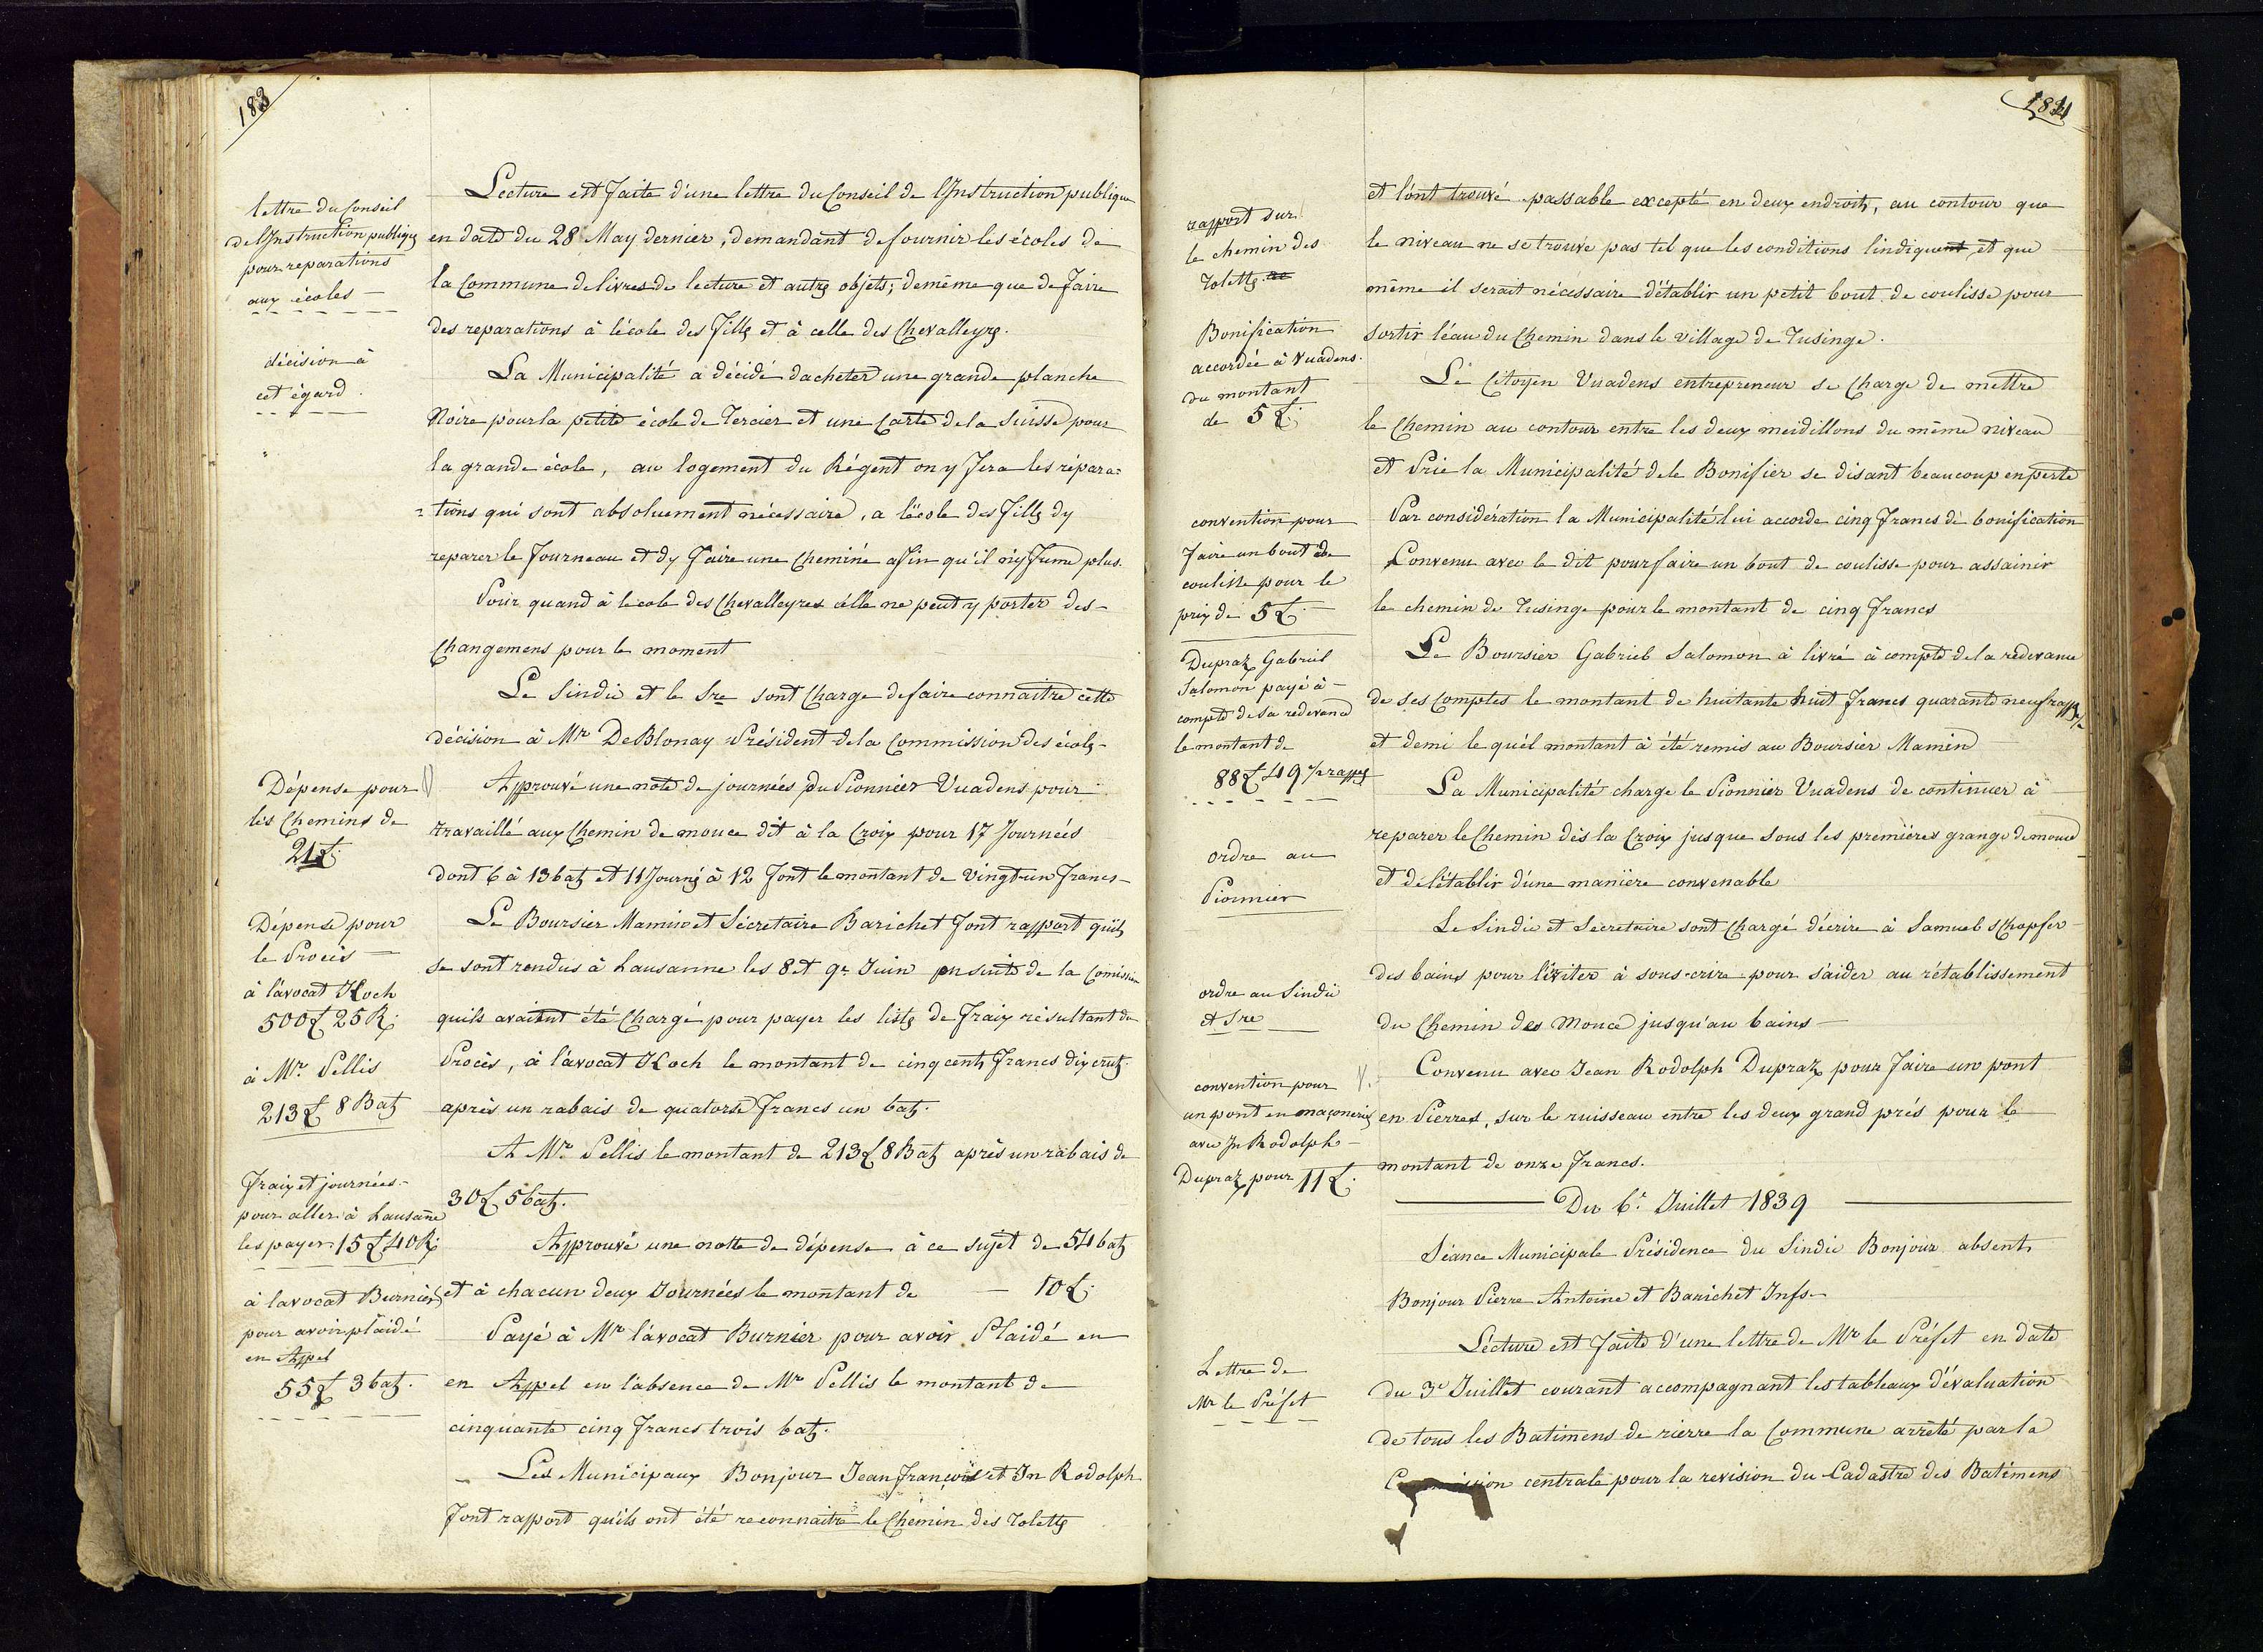 183
lettre du Conseil
de l'Instruction publique
pour reparations
aux écoles —
décision à
cet égard.
Dépense pour
les Chemins de
21 £.
Dépense pour
le Procès —
à l'avocat Koch
500 £ 25 R.
à Mr. Pellis
213 £ 8 Batz
Fraix et journées
pour aller à Lausanne
les payer. 15 £ 40 R.
à lavocat Burnier
pour avoir plaidé
en Appel
55 £ 3 batz.
Lecture est faite d'une lettre du Conseil de l'Instruction publique
en date du 28 May dernier, demandant de fournir les écoles de
la Commune de livres de lecture et autres objets; de même que de faire
des reparations à l'école des filles et à celle des Chevalleyres.
La Municipalité a décidé d'acheter une grande planche
Noire pour la petite école de Tercier et une Carte de la Suisse pour
la grande école, au logement du Régent on y fera les répara=
=tions qui sont absoluement nécessaire, a l'école des filles d'y
reparer le fourneau et d'y faire une Cheminé affin qu'il n'y fume plus.
Pour quand à lecole des Chevalleyres elle ne peut y porter des
Changemens pour le moment
Le Sindic et le Sre sont Charge de faire connaitre cette
décision à Mr DeBlonay Président de la Commission des écoles
Approuvé une note de journées du Pionnier Vuadens pour
travaillé aux Chemin de mouce dit à la Croix pour 17 Journées
dont 6 à 13 batz et 11 Journés à 12 font le montant de Vingt-un francs
Le Boursier Mamin et Sécretaire Barichet font rapport qu'ils
se sont rendus à Lausanne les 8 et 9e Juin ensuite de la Comission
quils avaient été Chargé pour payer les listes de fraix résultant du
Procès, à l'avocat Koch le montant de cinq cents francs dix crutz.
après un rabais de quatorse francs un batz.
A Mr. Pellis le montant de 213 £ 8 Batz après un rabais de
30 £ 5 batz.
Approuvé une notte de dépense à ce sujet de 54 batz
et à chacun deux Journées le montant de — 10 £.
Payé à Mr l'avocat Burnier pour avoir Plaidé en
en Appel en l'absence de Mr Pellis le montant de
cinquante cinq francs trois batz.
Les Municipaux Bonjour Jean françois et Jn Rodolph
font rapport quils ont été reconnaitre le Chemin des Tolettes
184
rapport sur
le chemin des
Tolettes.
Bonification
accordée à Vuadens.
du montant
de 5 £.
convention pour
faire un bout de
coulisse pour le
prix de 5 £.
Dupraz Gabriel
Salomon payé à
compte de sa redevance
le montant de
88 £ 49 1/2 rappes
ordre au
Pionnier
ordre au Sindic
et Sre
convention pour
un pont en maçonerie
avec Jn Rodolph
Dupraz pour 11 £.
Lettre de
Mr le Préfet
et l'ont trouvé passable excepté en deux endroits, au contour que
le niveau ne se trouve pas tel que les conditions l'indiquent et que
même il serait nécessaire d'établir un petit bout de coulisse pour
sortir l'éau du Chemin dans le village de Tusinge.
Le Citoyen Vuadens entrepreneur se Charge de mettre
le Chemin au contour entre les deux meidillons du même niveau
et Prie la Municipalité de le Bonifier se disant beaucoup en perte
Par considération la Municipalité lui accorde cinq francs de bonification
Convenu avec le dit pour faire un bout de coulisse pour assainir
le chemin de Tusinge pour le montant de cinq francs
Le Boursier Gabriel Salomon à livré à compte de la redevance
de ses Comptes le montant de huitante huit francs quarante neuf rappes 1/2
et demi le quél montant à été remis au Boursier Mamin
La Municipalité charge le Pionnier Vuadens de continuer à
reparer le Chemin dès la Croix jusque sous les premières grange de mouce
et de l'établir d'une manière convenable
Le Sindic et Secretaire sont Chargé d'écrire à Samuel SChopfer
des bains pour l'iviter à sous-crire pour s'aider au rétablissement
du Chemin des Mouce jusqu'au bains —
Convenu avec Jean Rodolph Dupraz pour faire un pont
en Pierres, sur le ruisseau entre les deux grand prés pour le
montant de onze francs.
Du 6e Juillet 1839
Séance Municipale Présidence du Sindic Bonjour absents
Bonjour Pierre Antoine et Barichet Infs.
Lécture est faite d'une lettre de Mr le Préfet en date
du 3e Juillet courant accompagnant les tableaux d'évaluation
de tous les Batimens de rierre la Commune arrêté par la
Commission centrale pour la revision du Cadastre des Batimens